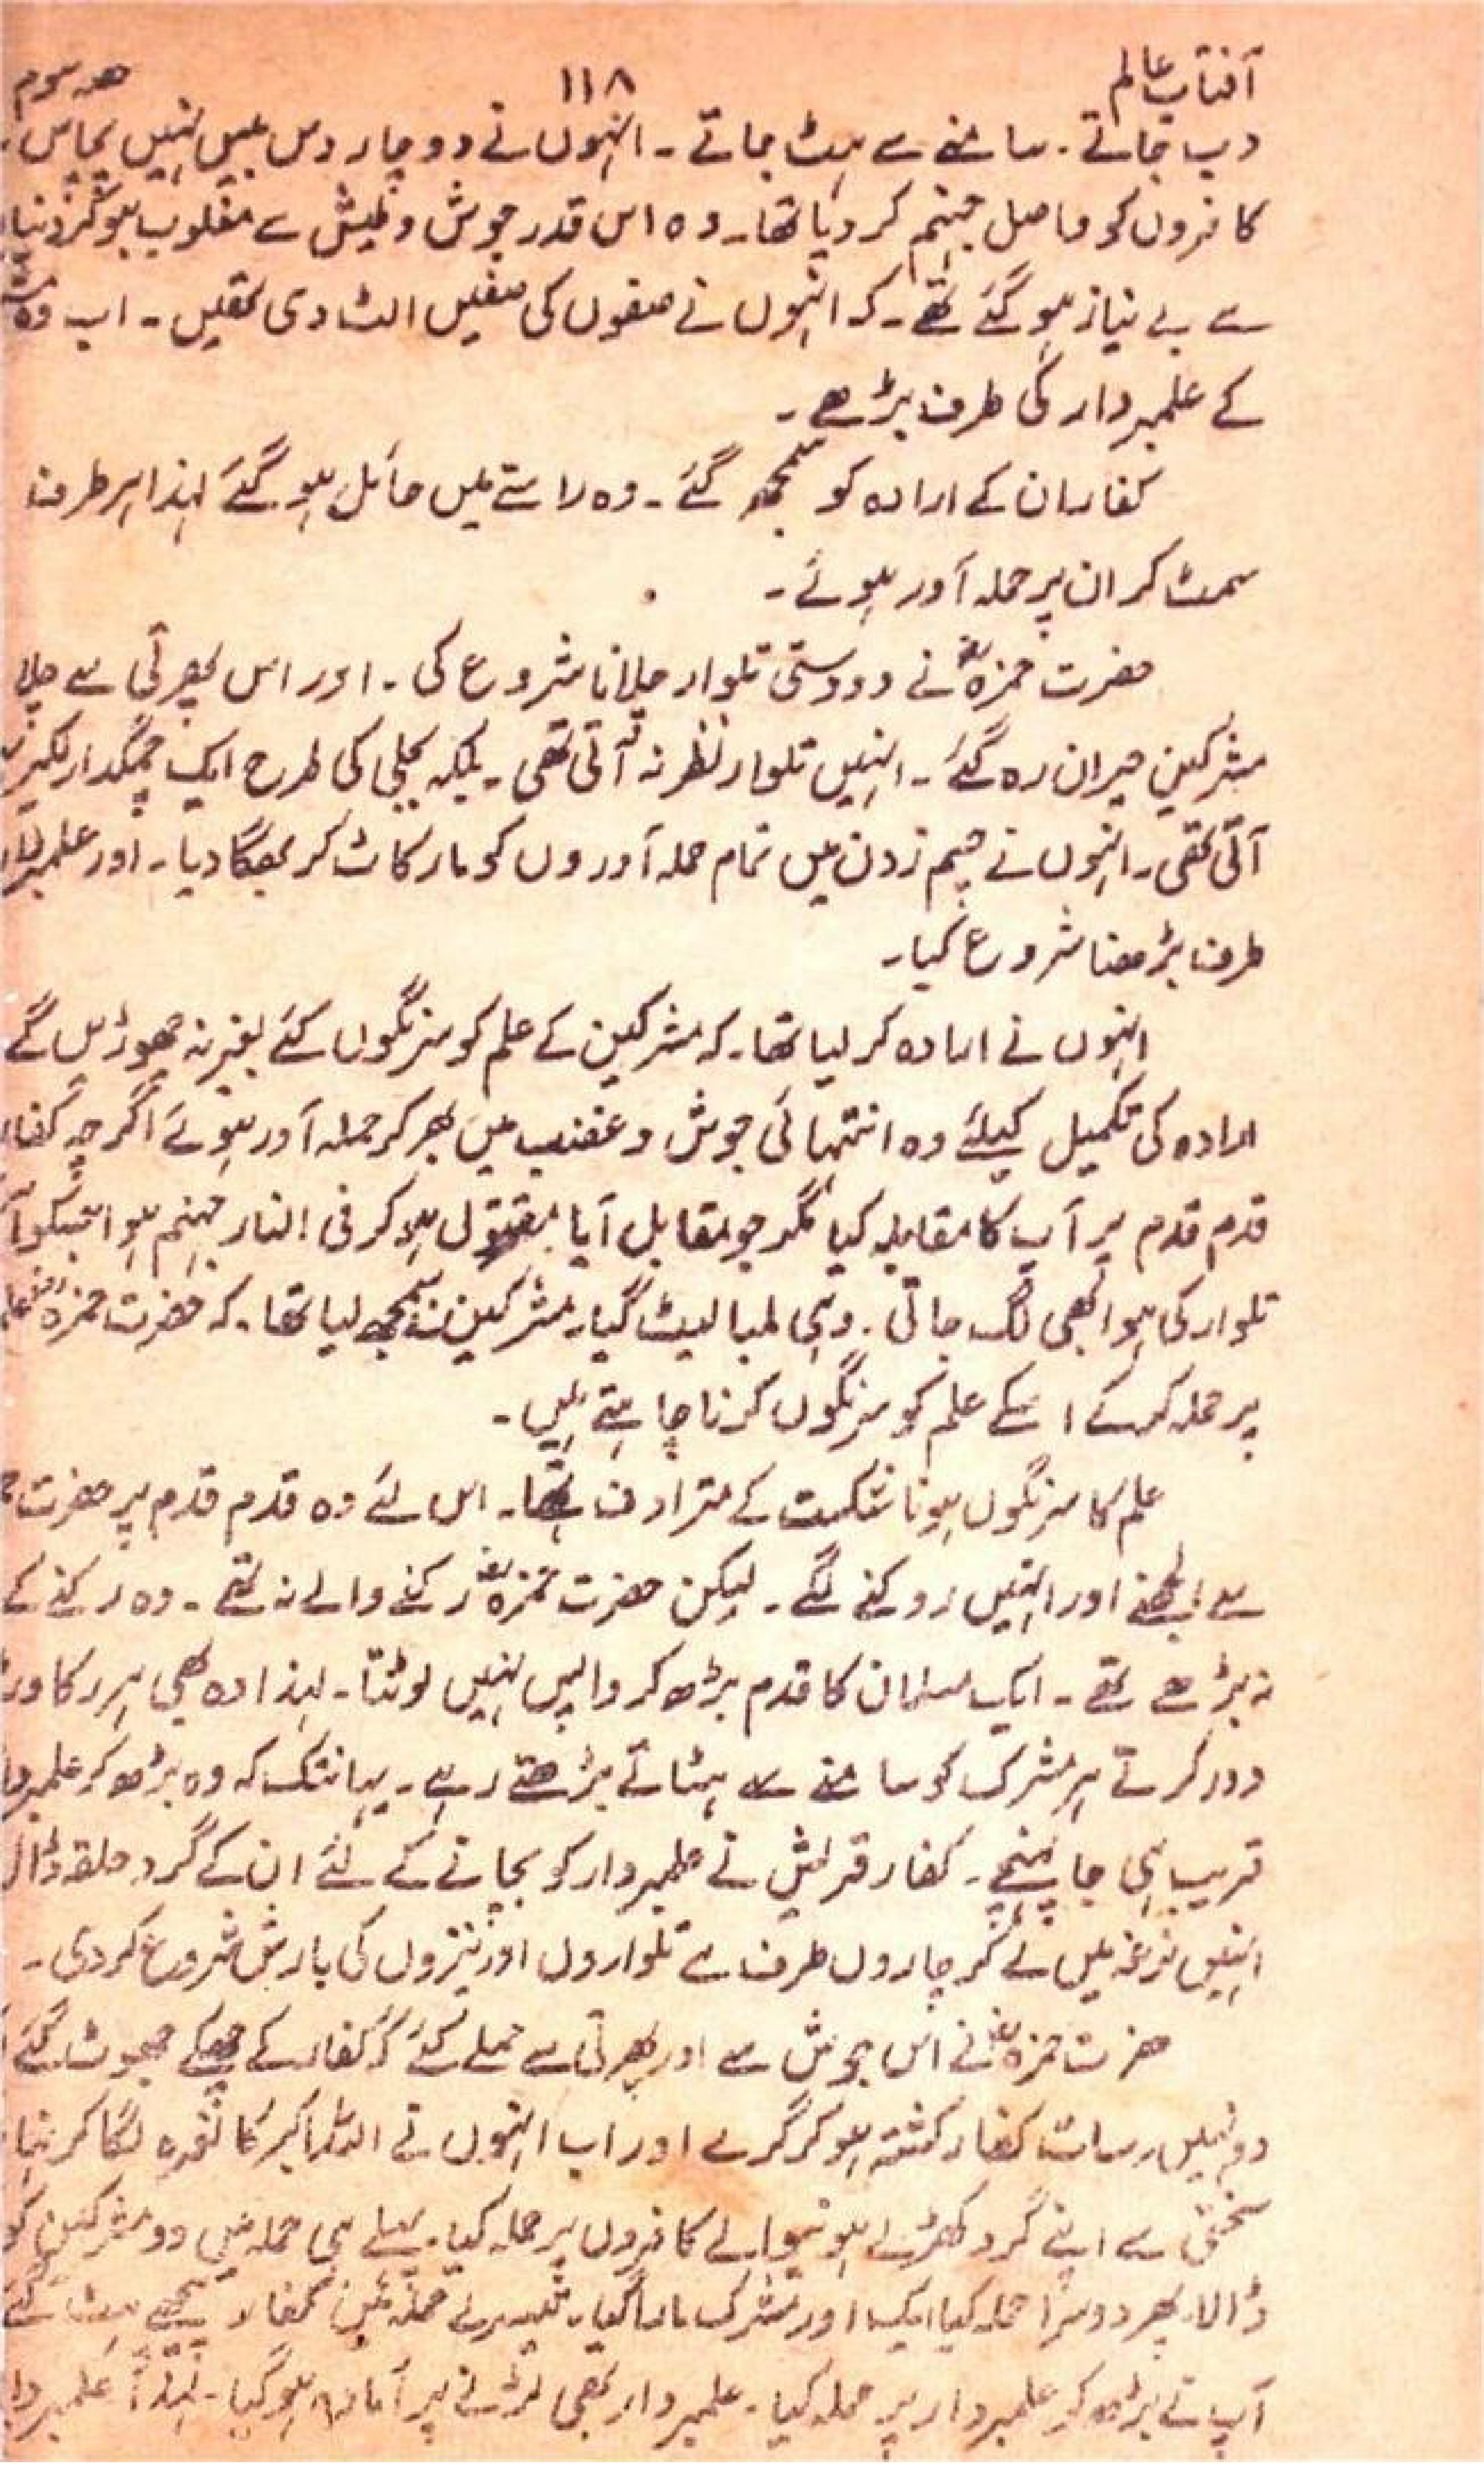 آفتاب عالم ۱۱۸ حصہ سوم
دب جاتے۔ سامنے سے ہٹ جاتے۔ انہوں نے دو چار دس بیس نہیں پچاس
کافروں کو واصل جہنم کر دیا تھا۔ وہ اس قدر جوش و طیش سے مغلوب ہو کر دنیا
سے بے نیاز ہو گئے تھے۔ کہ انہوں نے صفوں کی صفیں الٹ دی تھیں۔ اب وہ
کے علمبردار کی طرف بڑھے۔
کفار ان کے ارادہ کو سمجھ گئے۔ وہ راستے میں حائل ہو گئے لہذا ہر طرف
سمٹ کر ان پر حملہ آور ہوئے۔
حضرت حمزہؓ نے دو دستی تلوار چلانا شروع کی۔ اور اس پھرتی سے چلا
مشرکین حیران رہ گئے۔ انہیں تلوار نظر نہ آتی تھی۔ بلکہ بجلی کی طرح ایک چمکدار لکیر
آتی تھی۔ انہوں نے چشم زدن میں تمام حملہ آوروں کو مار کاٹ کر بھگا دیا۔ اور علمبردار
طرف بڑھنا شروع کیا۔
انہوں نے ارادہ کر لیا تھا۔ کہ مشرکین کے علم کو سرنگوں کئے بغیر نہ چھوڑیں گے
ارادہ کی تکمیل کیلئے وہ انتہائی جوش و غضب میں بھر کر حملہ آور ہوئے اگرچہ کفار
قدم قدم پر آپ کا مقابلہ کیا مگر جو مقابل آیا مقتول ہو کر فی النار جہنم ہوا جسکو آپ
تلوار کی ہوا بھی لگ جاتی۔ وہی لمبا لیٹ گیا۔ مشرکین نے سمجھ لیا تھا۔ کہ حضرت حمزہؓ
پر حملہ کر کے اسکے علم کو سرنگوں کرنا چاہتے ہیں۔
علم کا سرنگوں ہونا شکست کے مترادف تھا۔ اس لئے وہ قدم قدم پر حضرت
سے الجھنے اور انہیں روکنے لگے۔ لیکن حضرت حمزہؓ رکنے والے نہ تھے۔ وہ رکنے کے
نہ بڑھے تھے۔ ایک مسلمان کا قدم بڑھ کر واپس نہیں لوٹتا۔ لہذا وہ بھی ہر رکاوٹ
دور کرتے ہر مشرک کو سامنے سے ہٹاتے بڑھتے رہے۔ یہانتک کہ وہ بڑھ کر علمبردار
قریب ہی جا پہنچے۔ کفار قریش نے علمبردار کو بچانے کے لئے ان کے گرد حلقہ ڈال
انہیں نرغہ میں لے کر چاروں طرف سے تلواروں اور نیزوں کی بارش شروع کر دی۔
حضرت حمزہؓ نے اس جوش سے اور پھرتی سے حملے کئے کہ کفار کے چھکے چھوٹ گئے
دو نہیں سات کفار کشتہ ہو کر گرے اور اب انہوں نے اللہ اکبر کا نعرہ لگا کر
سختی سے اپنے گرد کھڑے ہونیوالے کافروں پر حملہ کیا۔ پہلے ہی حملہ میں دو مشرکین کو
ڈالا۔ پھر دوسرا حملہ کیا ایک اور مشرک مارا گیا۔ تیسرے حملہ میں کفار پیچھے ہٹ گئے
آپ نے بڑھ کر علمبردار پر حملہ کیا۔ علمبردار بھی لڑنے پر آمادہ ہو گیا۔ لہذا علمبردار